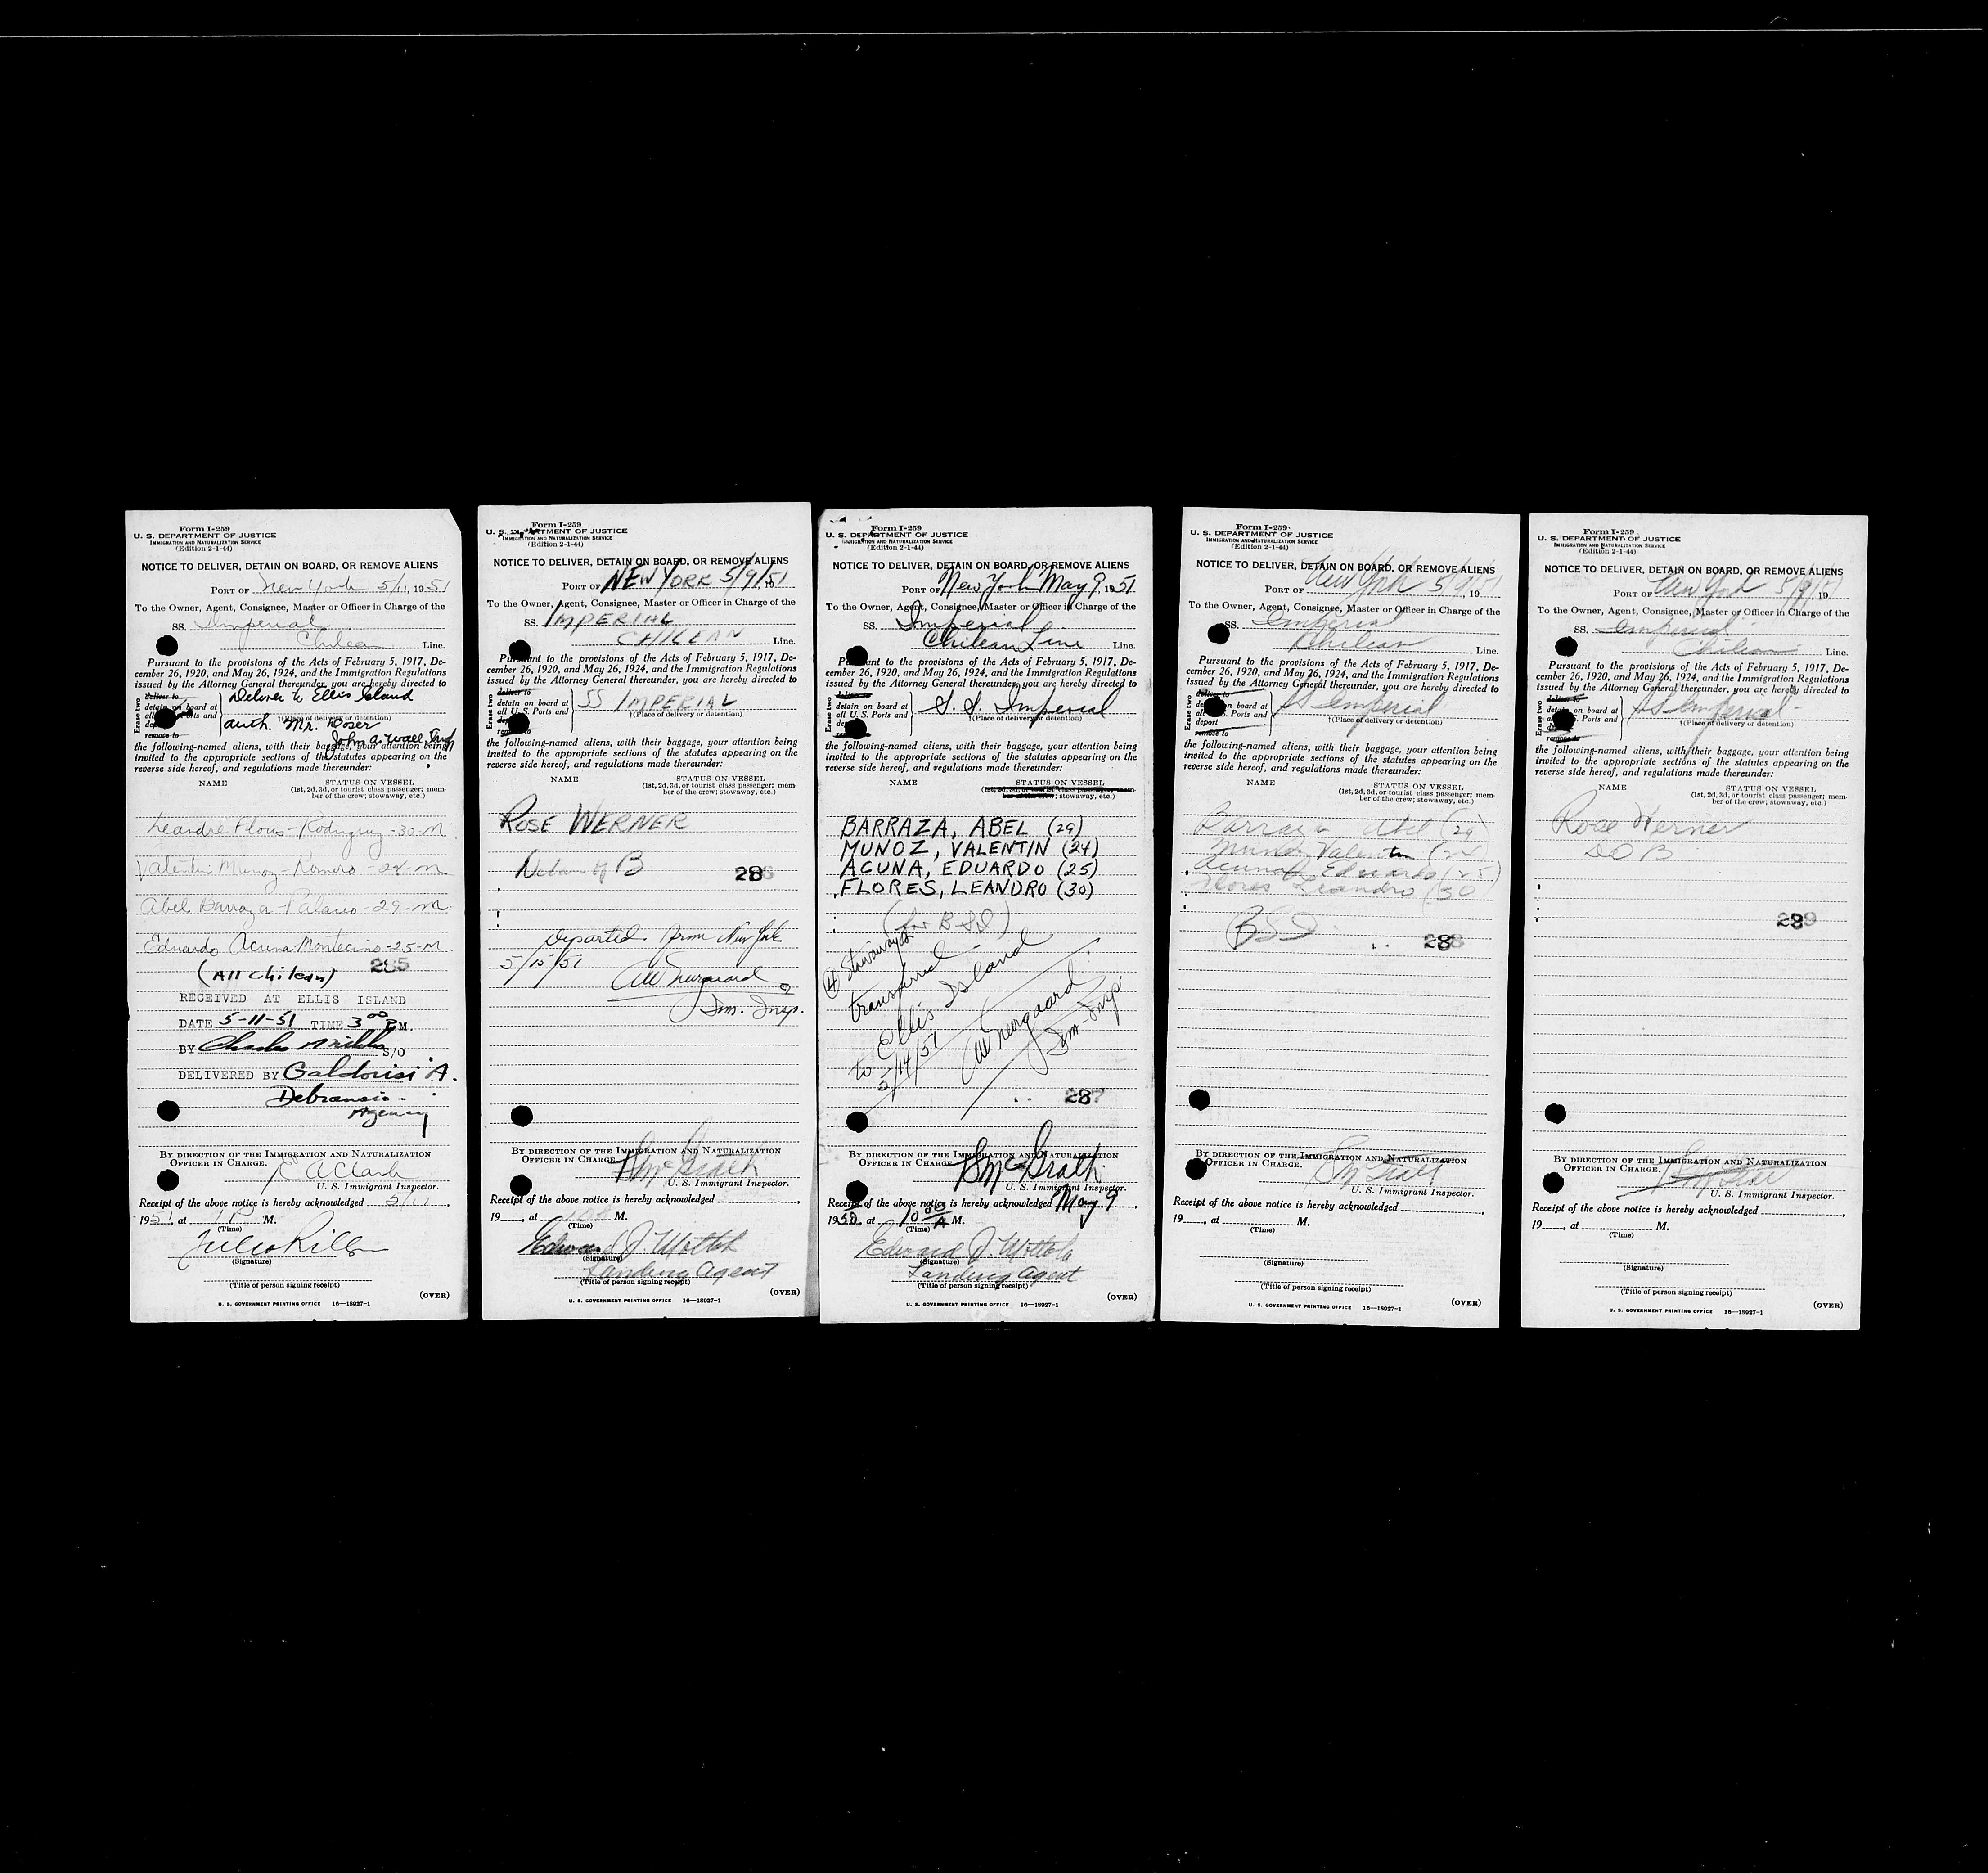 Form I-259
U. S. DEPARTMENT OF JUSTICE
IMMIGRATION AND NATURALIZATION SERVICE
(Edition 2-1-44)
NOTICE TO DELIVER, DETAIN ON BOARD, OR REMOVE ALIENS
PORT OF New York 5/11, 1951
To the Owner, Agent, Consignee, Master or Officer in Charge of the
SS. Imperial
Chilean Line.
Pursuant to the provisions of the Acts of February 5, 1917, De-
cember 26, 1920, and May 26, 1924, and the Immigration Regulations
issued by the Attorney General thereunder, you are hereby directed to
Erase two
deliver to
detain on board at
all U. S. Ports and
deport
remove to
Deliver to Ellis Island
(Place of delivery or detention)
auth. Mr. Roser
John A.
the following-named aliens, with their baggage, your attention being
invited to the appropriate sections of the statutes appearing on the
reverse side hereof, and regulations made thereunder:
NAME STATUS ON VESSEL
(1st, 2d, 3d, or tourist class passenger; mem-
ber of the crew; stowaway, etc.)
Leandro Flores-Rodriguez-30-M
Valentin Munoz-Romero-24-M
Abel Barraza-Palacio-29-M
Eduardo Acuna-Montecino-25-M
(All Chilean) 285
RECEIVED AT ELLIS ISLAND
DATE 5-11-51 TIME 3 00 P M.
BY Charles S/O
DELIVERED BY Galdorisi A.
Debransio-
Agency
BY DIRECTION OF THE IMMIGRATION AND NATURALIZATION
OFFICER IN CHARGE.
A Clark
U. S. Immigrant Inspector.
Receipt of the above notice is hereby acknowledged 5/11,
1951, at 1 P M.
(Time)
(Signature)
(Title of person signing receipt)
(OVER)
U. S. GOVERNMENT PRINTING OFFICE 16—18927-1
Form I-259
U. S. DEPARTMENT OF JUSTICE
IMMIGRATION AND NATURALIZATION SERVICE
(Edition 2-1-44)
NOTICE TO DELIVER, DETAIN ON BOARD, OR REMOVE ALIENS
PORT OF NEW YORK 5/9/51, 19
To the Owner, Agent, Consignee, Master or Officer in Charge of the
SS. IMPERIAL
CHILEAN Line.
Pursuant to the provisions of the Acts of February 5, 1917, De-
cember 26, 1920, and May 26, 1924, and the Immigration Regulations
issued by the Attorney General thereunder, you are hereby directed to
Erase two
deliver to
detain on board at
all U. S. Ports and
deport
remove to
SS IMPERIAL
(Place of delivery or detention)
the following-named aliens, with their baggage, your attention being
invited to the appropriate sections of the statutes appearing on the
reverse side hereof, and regulations made thereunder:
NAME STATUS ON VESSEL
(1st, 2d, 3d, or tourist class passenger; mem-
ber of the crew; stowaway, etc.)
ROSE WERNER
B 286
Departed from New York
5/15/51
Imm. Insp.
BY DIRECTION OF THE IMMIGRATION AND NATURALIZATION
OFFICER IN CHARGE.
McGrath
U. S. Immigrant Inspector.
Receipt of the above notice is hereby acknowledged
19 , at M.
(Time)
Edward J Mottola
(Signature)
Landing Agent
(Title of person signing receipt)
(OVER)
U. S. GOVERNMENT PRINTING OFFICE 16—18927-1
Form I-259
U. S. DEPARTMENT OF JUSTICE
IMMIGRATION AND NATURALIZATION SERVICE
(Edition 2-1-44)
NOTICE TO DELIVER, DETAIN ON BOARD, OR REMOVE ALIENS
PORT OF New York May 9 1951
To the Owner, Agent, Consignee, Master or Officer in Charge of the
SS. Imperial
Chilean Line Line.
Pursuant to the provisions of the Acts of February 5, 1917, De-
cember 26, 1920, and May 26, 1924, and the Immigration Regulations
issued by the Attorney General thereunder, you are hereby directed to
Erase two
deliver to
detain on board at
all U. S. Ports and
deport
remove to
S. S. Imperial
(Place of delivery or detention)
the following-named aliens, with their baggage, your attention being
invited to the appropriate sections of the statutes appearing on the
reverse side hereof, and regulations made thereunder:
NAME STATUS ON VESSEL
(1st, 2d, 3d, or tourist class passenger; mem-
ber of the crew; stowaway, etc.)
BARRAZA, ABEL (29)
MUNOZ, VALENTIN (24)
ACUNA, EDUARDO (25)
FLORES, LEANDRO (30)
(for B S I)
(4) Stowaways
transferred
to Ellis Island
5/14/51
Imm. Insp
287
BY DIRECTION OF THE IMMIGRATION AND NATURALIZATION
OFFICER IN CHARGE.
McGrath
U. S. Immigrant Inspector.
Receipt of the above notice is hereby acknowledged May 9,
19 , at 10 00 A M.
(Time)
Edward J Mottola
(Signature)
Landing Agent
(Title of person signing receipt)
(OVER)
U. S. GOVERNMENT PRINTING OFFICE 16—18927-1
Form I-259
U. S. DEPARTMENT OF JUSTICE
IMMIGRATION AND NATURALIZATION SERVICE
(Edition 2-1-44)
NOTICE TO DELIVER, DETAIN ON BOARD, OR REMOVE ALIENS
PORT OF New York 5/9/51, 19
To the Owner, Agent, Consignee, Master or Officer in Charge of the
SS. Imperial
Chilean Line.
Pursuant to the provisions of the Acts of February 5, 1917, De-
cember 26, 1920, and May 26, 1924, and the Immigration Regulations
issued by the Attorney General thereunder, you are hereby directed to
Erase two
deliver to
detain on board at
all U. S. Ports and
deport
remove to
SS Imperial
(Place of delivery or detention)
the following-named aliens, with their baggage, your attention being
invited to the appropriate sections of the statutes appearing on the
reverse side hereof, and regulations made thereunder:
NAME STATUS ON VESSEL
(1st, 2d, 3d, or tourist class passenger; mem-
ber of the crew; stowaway, etc.)
Barraza Abel (29)
Munoz Valentin (24)
Acuna Eduardo (25)
Flores Leandro (30
BSI
288
BY DIRECTION OF THE IMMIGRATION AND NATURALIZATION
OFFICER IN CHARGE.
McGrath
U. S. Immigrant Inspector.
Receipt of the above notice is hereby acknowledged
19 , at M.
(Time)
(Signature)
(Title of person signing receipt)
(OVER)
U. S. GOVERNMENT PRINTING OFFICE 16—18927-1
Form I-259
U. S. DEPARTMENT OF JUSTICE
IMMIGRATION AND NATURALIZATION SERVICE
(Edition 2-1-44)
NOTICE TO DELIVER, DETAIN ON BOARD, OR REMOVE ALIENS
PORT OF New York 5/9/51, 19
To the Owner, Agent, Consignee, Master or Officer in Charge of the
SS. Imperial
Chilean Line.
Pursuant to the provisions of the Acts of February 5, 1917, De-
cember 26, 1920, and May 26, 1924, and the Immigration Regulations
issued by the Attorney General thereunder, you are hereby directed to
Erase two
deliver to
detain on board at
all U. S. Ports and
deport
remove to
SS Imperial
(Place of delivery or detention)
the following-named aliens, with their baggage, your attention being
invited to the appropriate sections of the statutes appearing on the
reverse side hereof, and regulations made thereunder:
NAME STATUS ON VESSEL
(1st, 2d, 3d, or tourist class passenger; mem-
ber of the crew; stowaway, etc.)
Rose Werner
DOB
289
BY DIRECTION OF THE IMMIGRATION AND NATURALIZATION
OFFICER IN CHARGE.
U. S. Immigrant Inspector.
Receipt of the above notice is hereby acknowledged
19 , at M.
(Time)
(Signature)
(Title of person signing receipt)
(OVER)
U. S. GOVERNMENT PRINTING OFFICE 16—18927-1